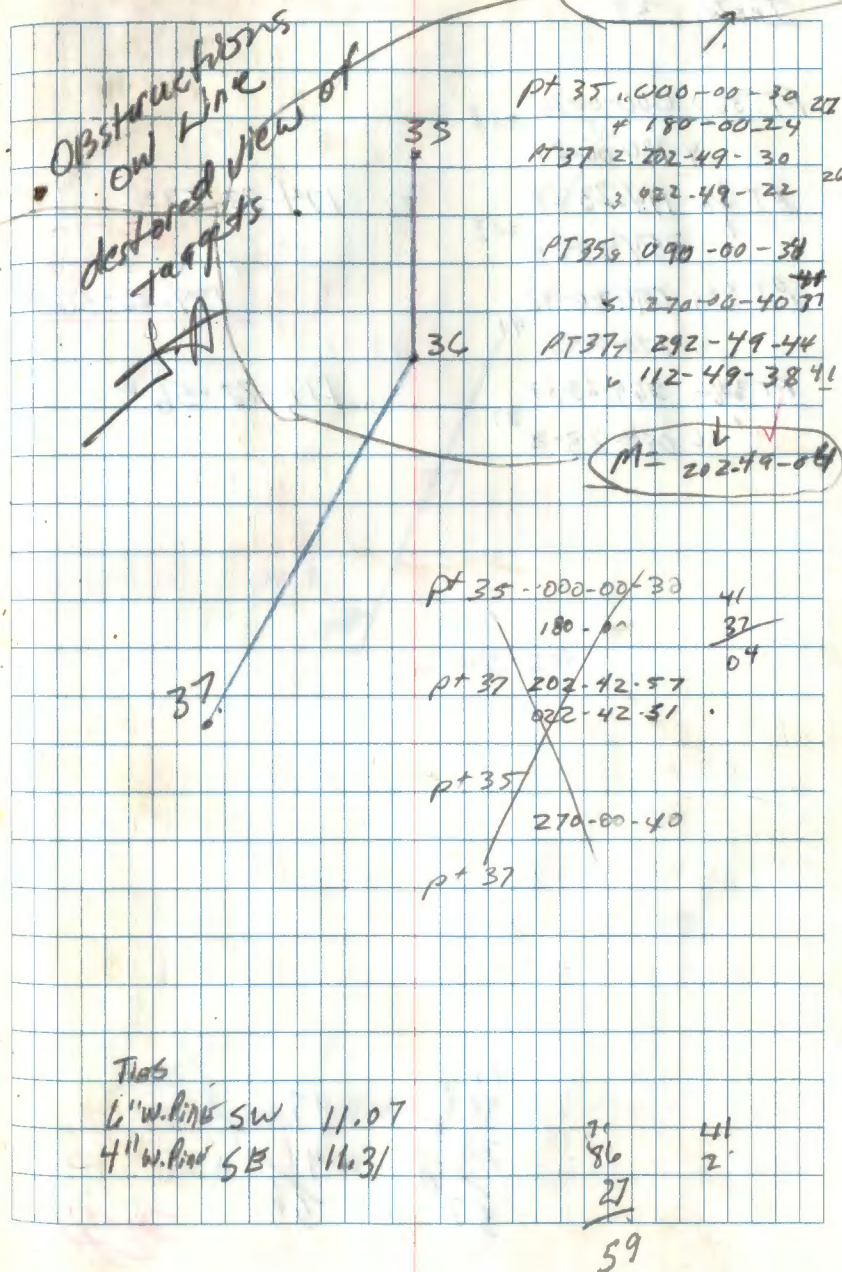 • OBstructions
on Line
destored view of
targets.
35
36
37
pt 35 1. 000-00-30 27
4 180-00-24
PT37 2. 202-49-30
3 022-49-22 26
PT35 8 090-00-34
5. 270-00-40 37
PT37 7 292-49-44
6 112-49-38 41
M= 202-49-04
pt 35 - 000-00-30
180-00
pt 37 202-42-57
022-42-51
pt 35
270-00-40
pt 37
41
37
04
Ties
6" W.Pine SW 11.07
4" W.Pine SE 11.31
86
27
59
41
2